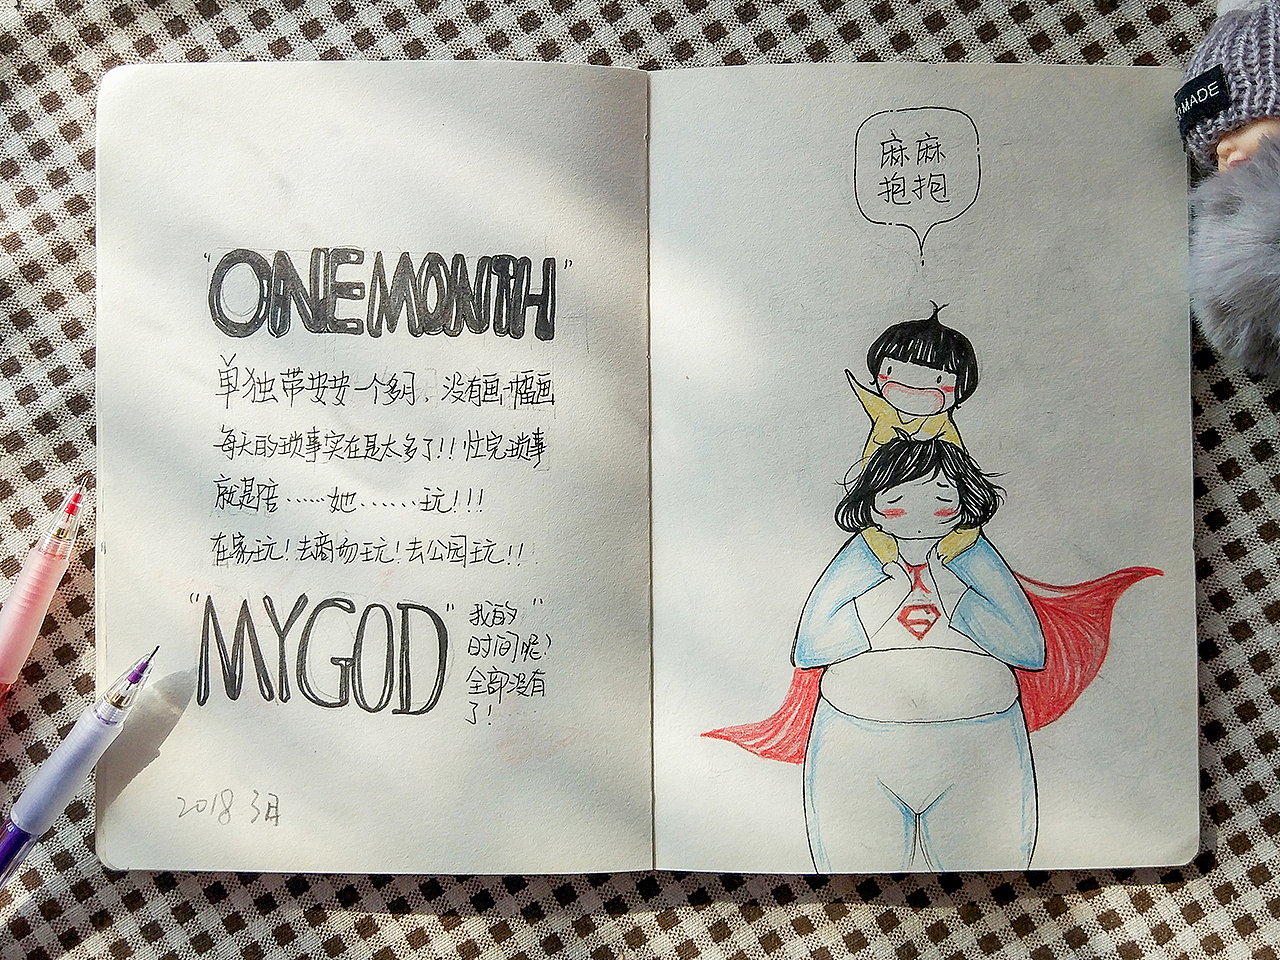 "ONE MONTH"
单独带安安一个多月，没有画一幅画
每天的琐事实在是太多了!!忙完琐事
就是陪……她……玩!!!
在家玩!去商场玩!去公园玩!!
"MY GOD"
我的
时间呢?
全部没有
了!
2018 3月
麻麻
抱抱
S
MADE